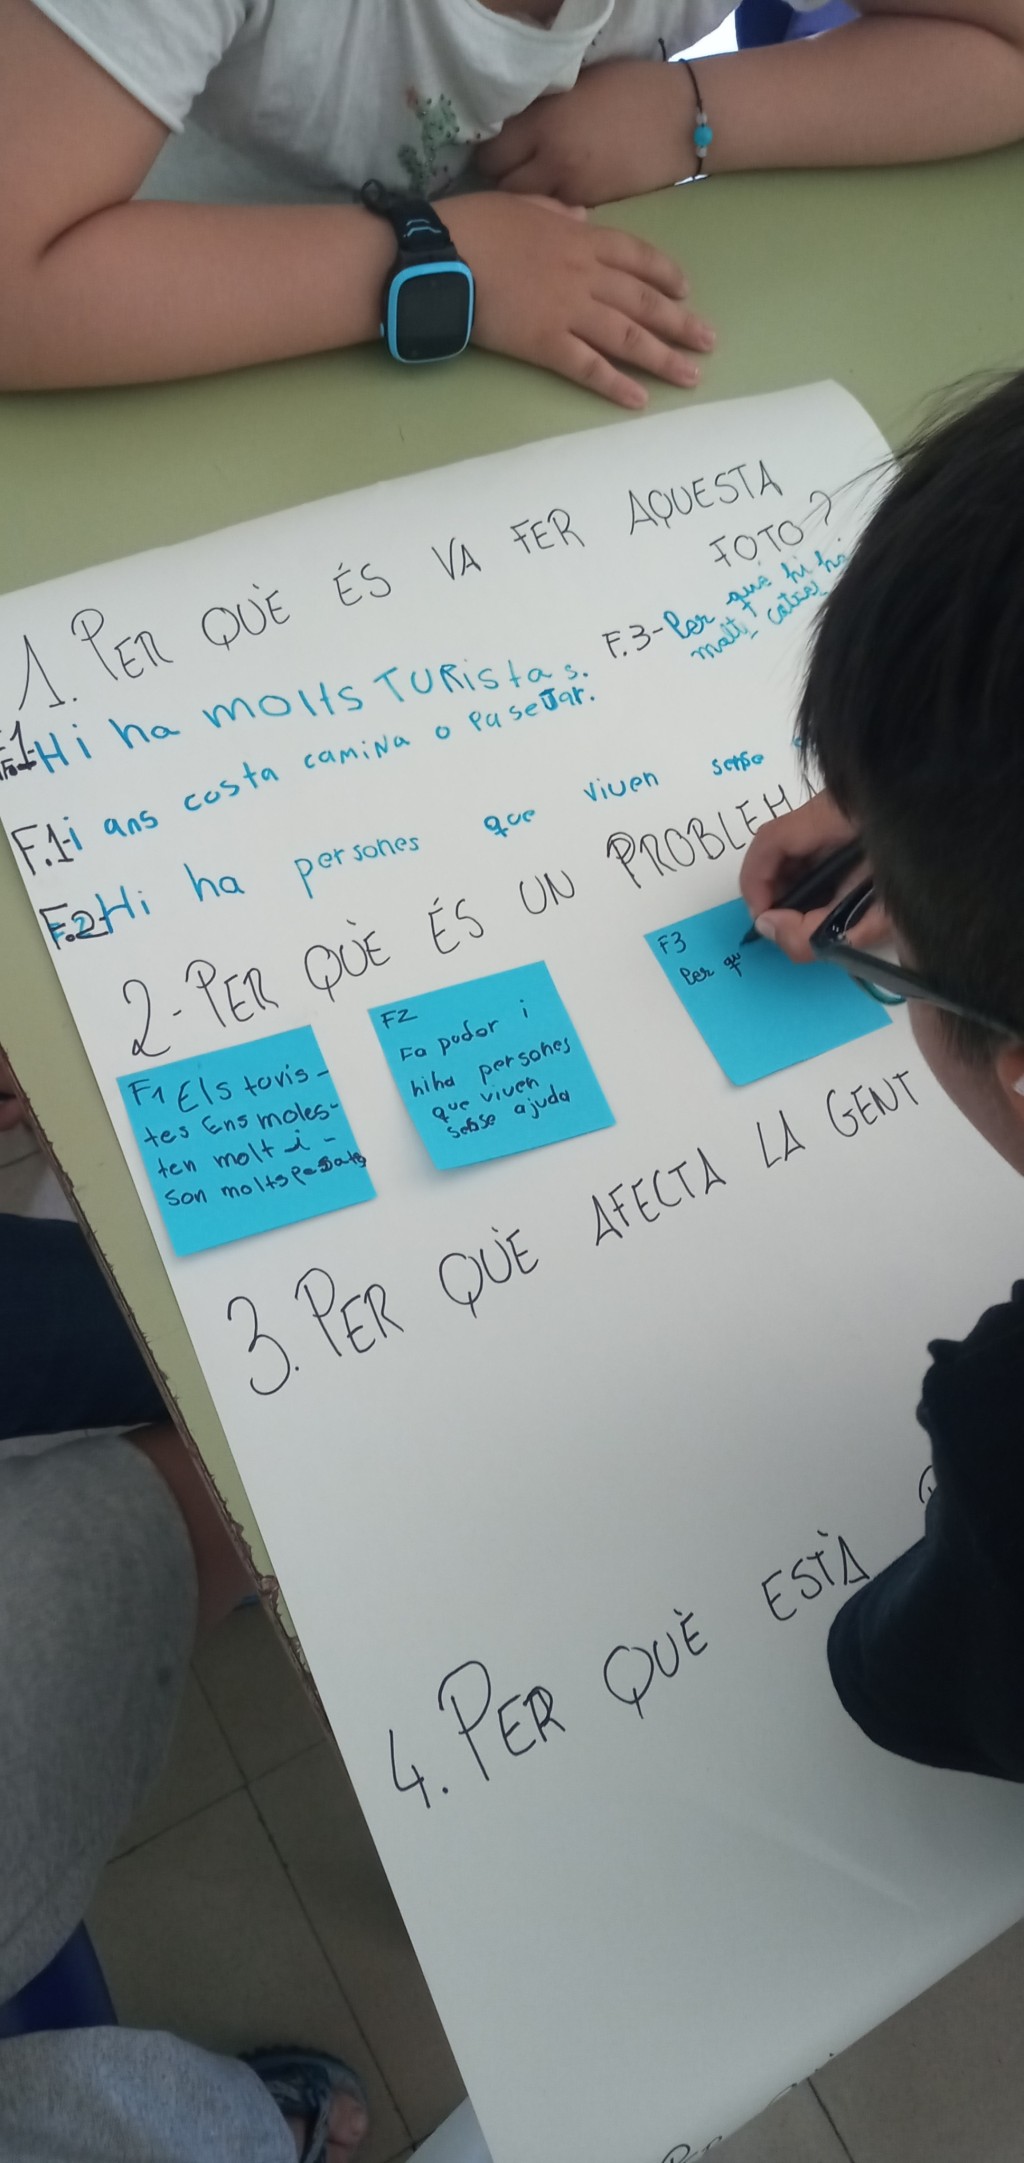 1. PER QUÈ ÉS VA FER AQUESTA
FOTO?
F.1-Hi ha molts TURistas.
F.3-Per que hi ha
molt
F.1-i ans costa camiNa o PaseJar.
F.2-Hi ha persones que viven sense
2-PER QUÈ ÉS UN PROBLEMA
F1 Els tovis-
tes Ens moles-
ten molt i-
son molts pesats
F2
Fa pudor i
hiha persones
que viven
sense ajuda
F3
Per qu
3. PER QUÈ AFECTA LA GENT
4. PER QUÈ ESTÀ